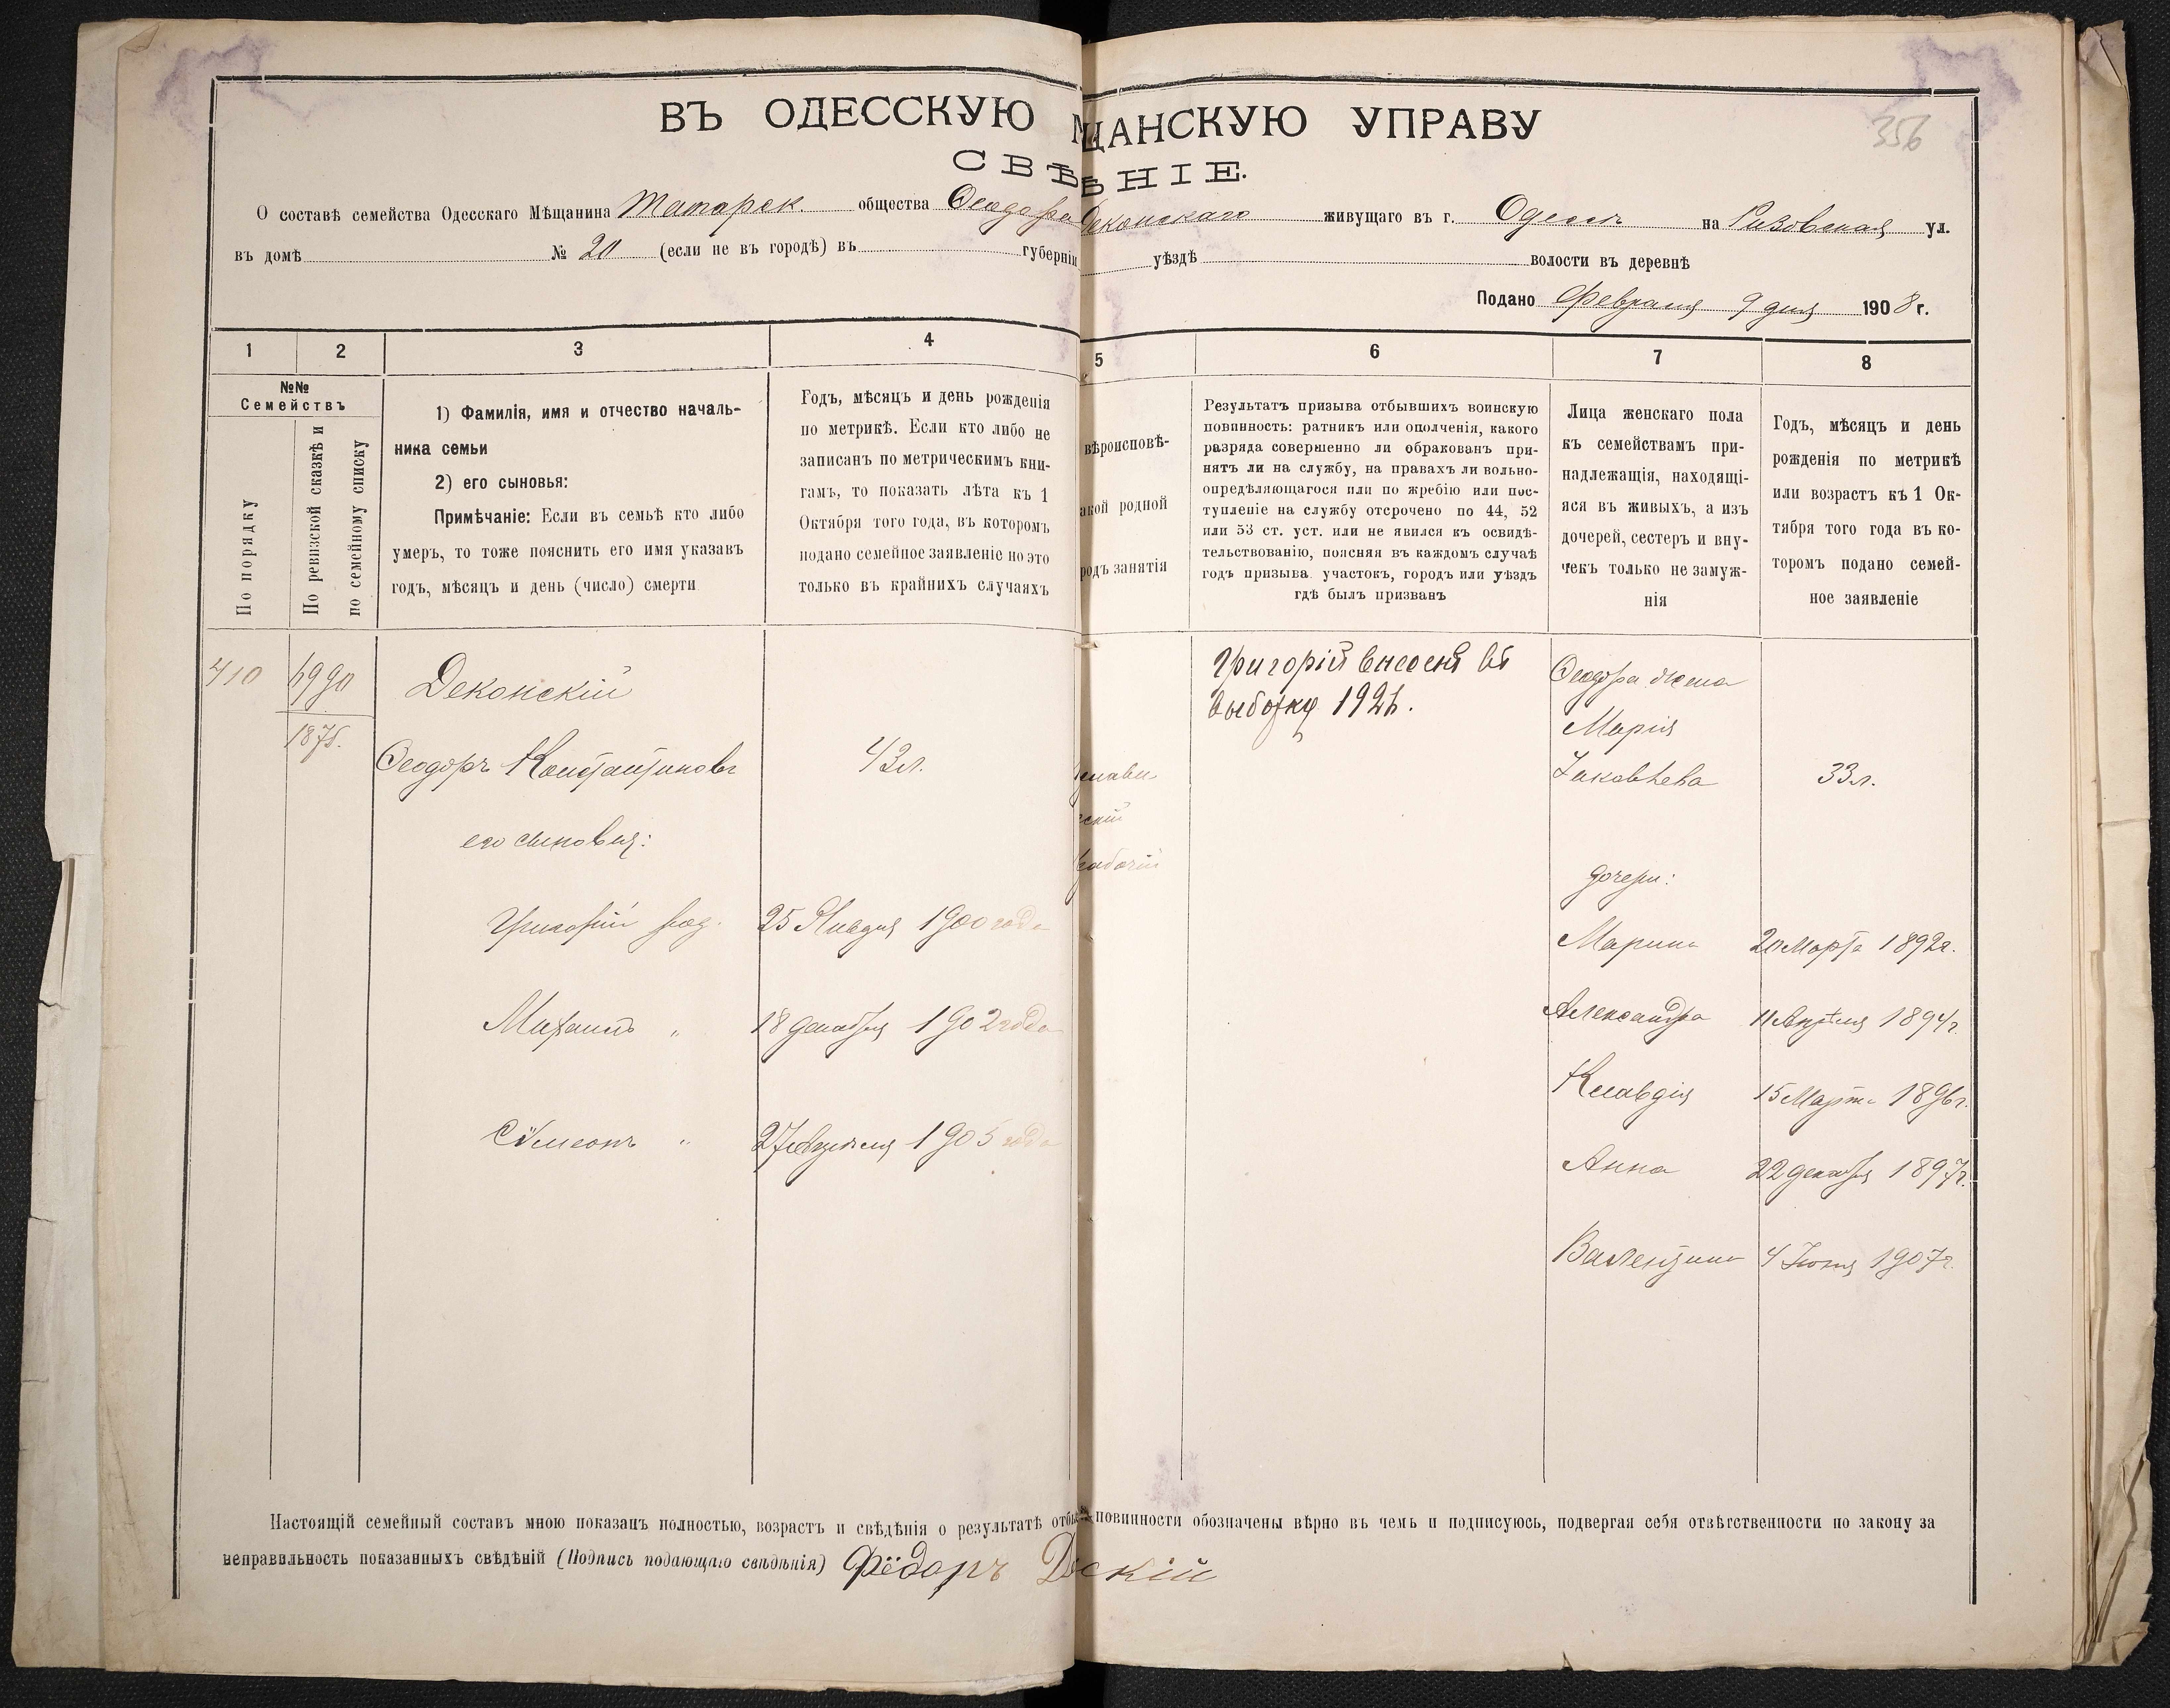 ВЪ ОДЕССКУЮ МЩАНСКУЮ УПРАВУ
356
СВѢѢНІЕ.
О составѣ семейства Одесскаго Мѣщанина Татарск. общества Ѳеодора Деконскаго живущаго въ г. Одессѣ на Ризовская ул.
въ домѣ № 20 (если не въ городѣ) въ губерніи уѣздѣ волости въ деревнѣ
Подано Февраля 9 дня 1908 г.
1 2 3 4 5 6 7 8
№№
Семействъ
По порядку
По ревизской сказкѣ и
по семейному списку
1) Фамилія, имя и отчество началь-
ника семьи
2) его сыновья:
Примѣчаніе: Если въ семьѣ кто либо
умеръ, то тоже пояснить его имя указавъ
годъ, мѣсяцъ и день (число) смерти
Годъ, мѣсяцъ и день рожденія
по метрикѣ. Если кто либо не
записанъ по метрическимъ кни-
гамъ, то показать лѣта къ 1
Октября того года, въ которомъ
подано семейное заявленіе но это
только въ крайнихъ случаяхъ
вѣроисповѣ-
акой родной
родъ занятія
Результатъ призыва отбывшихъ воинскую
повинность: ратникъ или ополченія, какого
разряда совершенно ли обракованъ при-
нятъ ли на службу, на правахъ ли вольно-
опредѣляющагося или по жребію или пос-
тупленіе на службу отсрочено по 44, 52
или 53 ст. уст. или не явился къ освидѣ-
тельствованію, поясняя въ каждомъ случаѣ
годъ призыва участокъ, городъ или уѣздъ
гдѣ былъ призванъ
Лица женскаго пола
къ семействамъ при-
надлежащія, находящі-
яся въ живыхъ, а изъ
дочерей, сестеръ и вну-
чекъ только не замуж-
нія
Годъ, мѣсяцъ и день
рожденія по метрикѣ
или возрастъ къ 1 Ок-
тября того года въ ко-
торомъ подано семей-
ное заявленіе
410
1875.
Деконскій
Ѳеодоръ Константиновъ 43 л.
его сыновья:
Григорій род. 25 Января 1900 года
Михаилъ „ 18 декабря 1902 года
Сѵмеонъ „ 1905 года
скій
рабочій
Григорій внесенъ въ
выборку 1921.
Ѳеодора жена
Марія
Іаковлева 33 л.
дочери:
Марина 20 Марта 1892 г.
Александра 11 Апрѣля 1894 г.
Клавдія 15 Марта 1896 г.
Анна 22 декабря 1897 г.
Валентина 4 Іюня 1907 г.
Настоящій семейный составъ мною показанъ полностью, возрастъ и свѣдѣнія о результатѣ отбы повинности обозначены вѣрно въ чемъ и подписуюсь, подвергая себя отвѣтственности по закону за
неправильность показанныхъ свѣдѣній (Подпись подающаго свѣдѣнія) Фёдоръ Дскій